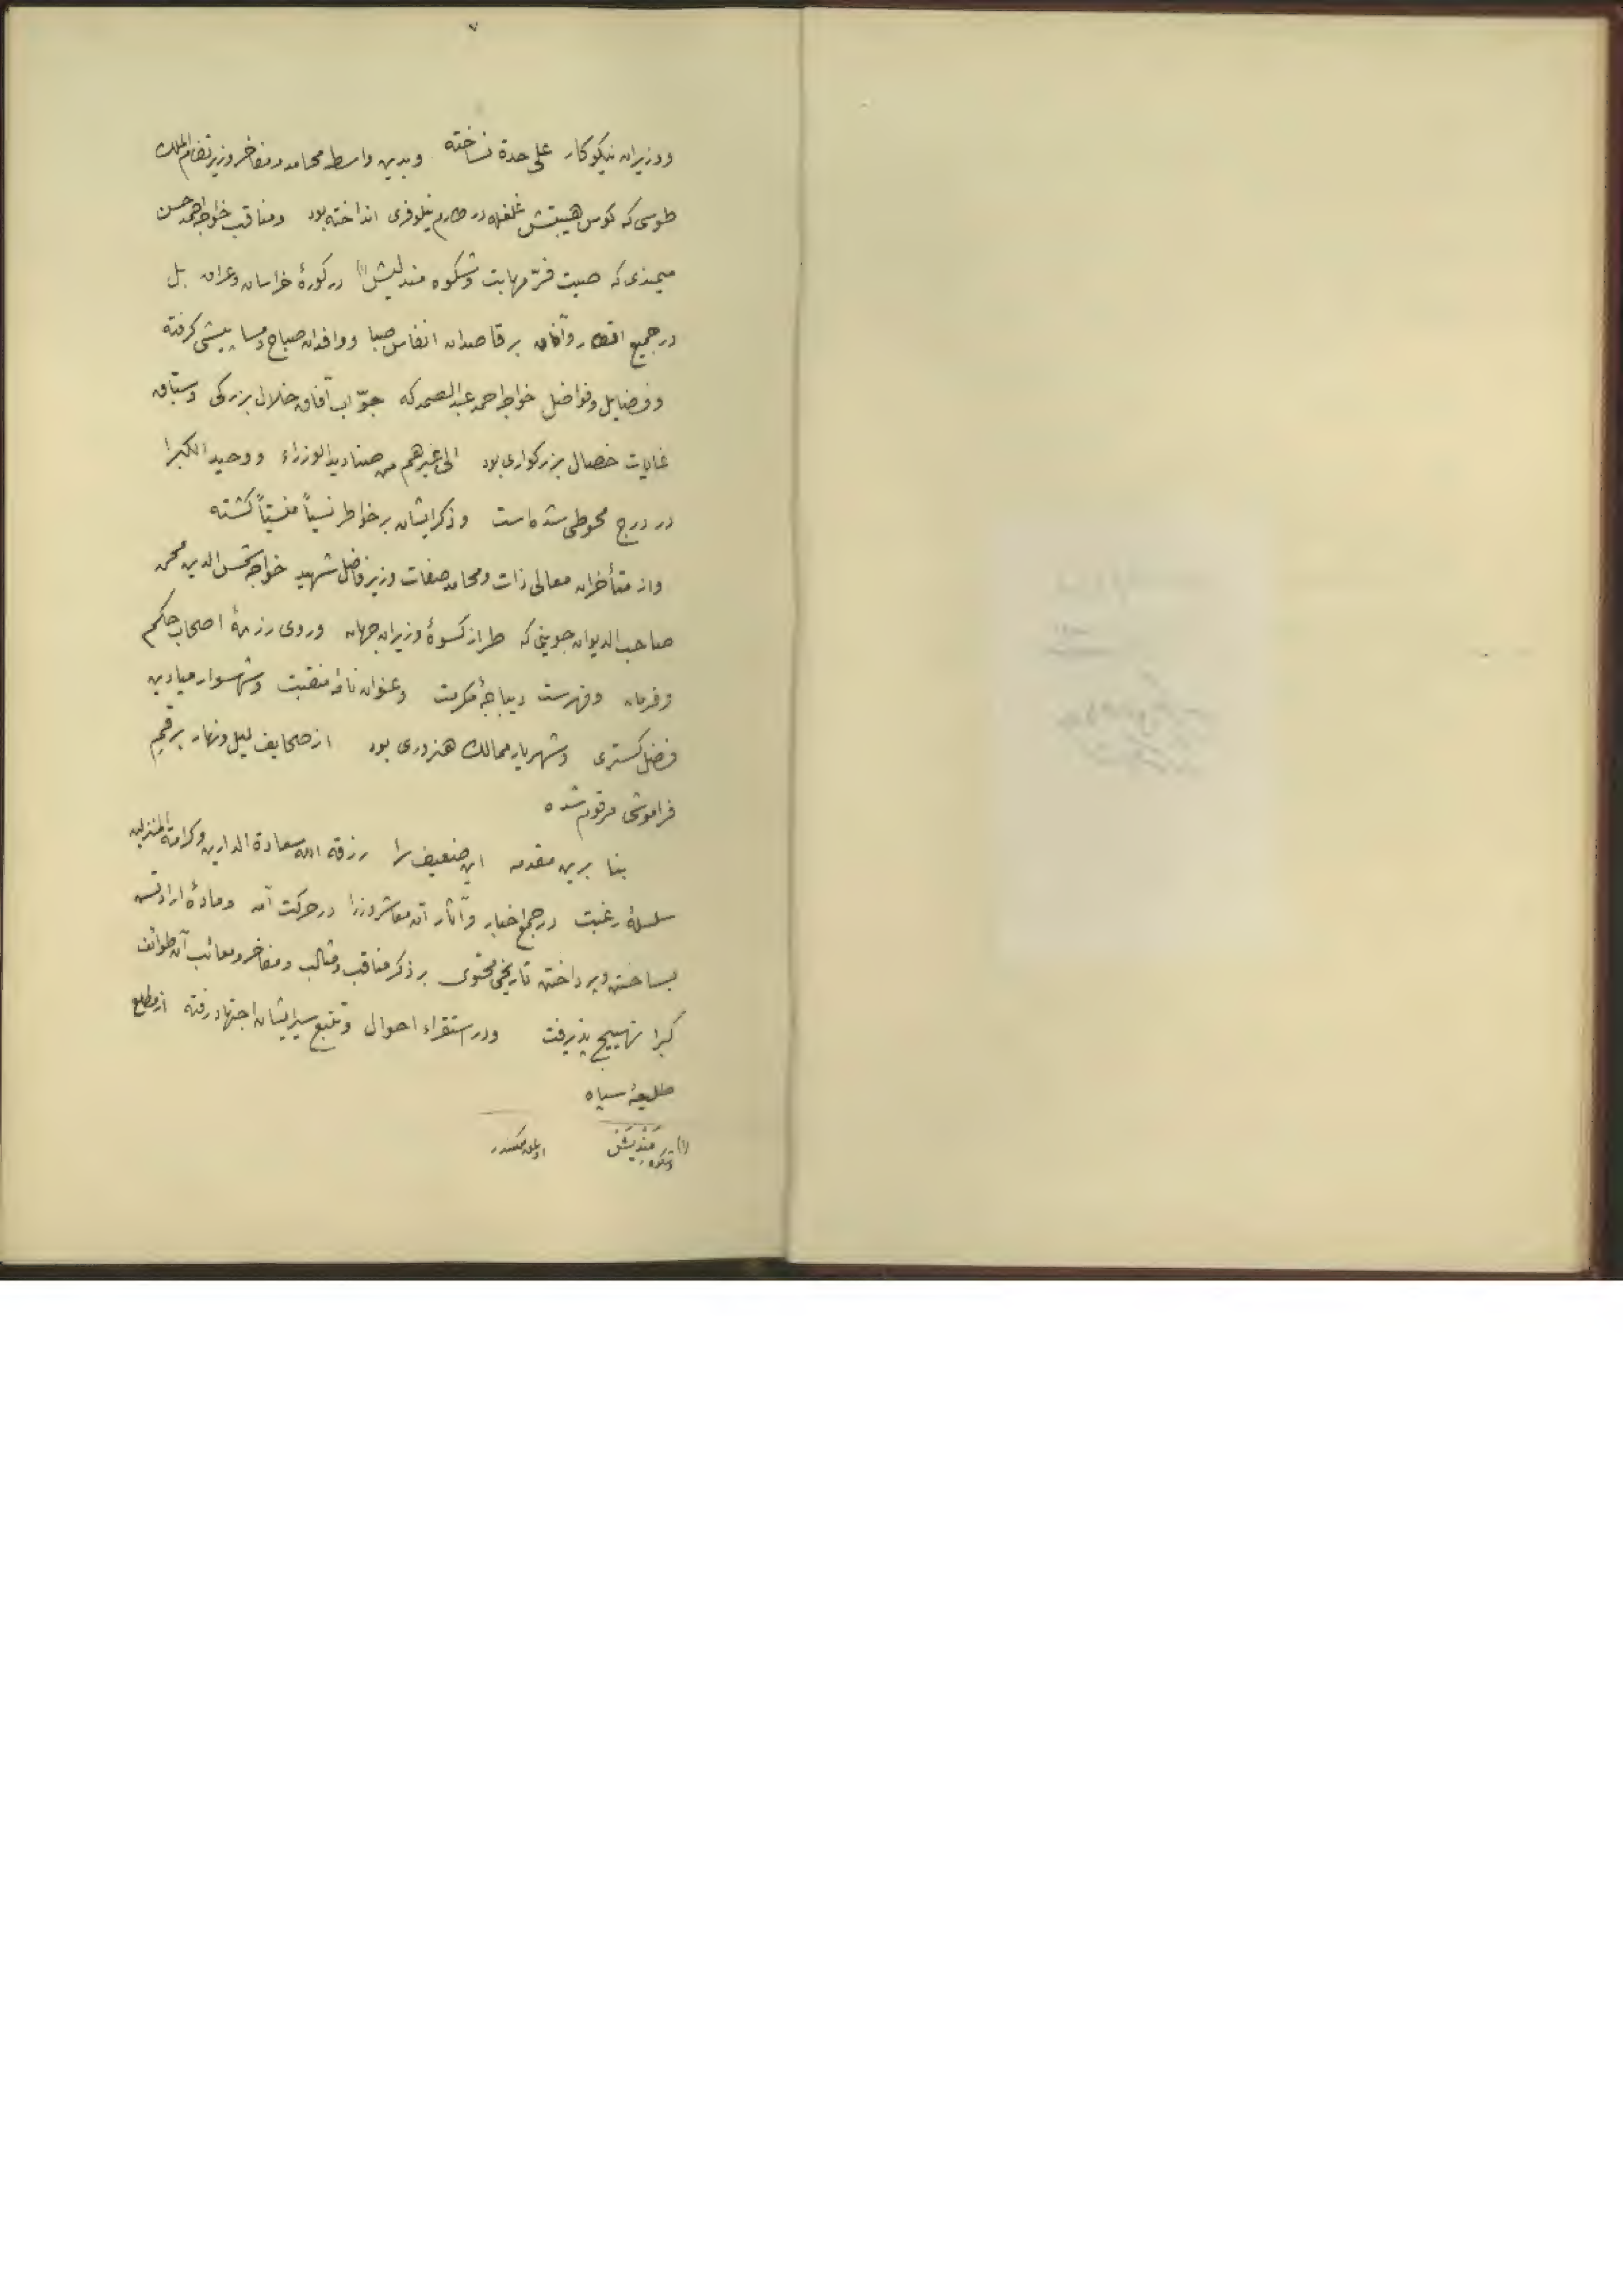 ۷
ووزیران نیکوکار علی حدة نساخته وبدین واسطه محامد ومفاخر وزیر نظام الملک
طوسی که کوس هیبتش غلغله در طارم نیلوفری انداخته بود ومناقب خواجه احمد حسن
میمندی که صیت فرّ مهابت وشکوه مندلیش (۱) در کورهٔ خراسان وعراق بل
در جمیع اقطار وآفاق بر قاصدان انفاس صبا ووافدان صباح ومسا پیشی گرفته
وفضایل وفواضل خواجه احمد عبد الصمد که جوّاب آفاق خلال بزرکی وسبّاق
غایات خصال بزرکواری بود الی غیرهم من صنادید الوزراء ووحید الکبرا
در درج محو طی شده است وذکر ایشان بر خواطر نسیاً منسیّاً کشته
واز متأخران معالی ذات ومحامد صفات وزیر فاضل شهید خواجه شمس الدین محمد
صاحب الدیوان جوینی که طراز کسوهٔ وزیران جهان وروی رزمهٔ اصحاب حکم
وفرمان وفهرست دیباجهٔ مکرمت وعنوان نامهٔ منقبت وشهسوار میادین
فضل کستری وشهریار ممالک هنروری بود از صحایف لیل ونهار برقم
فراموشی مرقوم شده
بنا برین مقدمه این ضعیف را رزقه الله سعادة الدارین وکرامة المنزلین
سلسلهٔ رغبت در جمع اخبار وآثار آن معاشر وزرا در حرکت آمد ومادهٔ ارادتش
بساختن وپرداختن تاریخی محتوی بر ذکر مناقب ومثالب ومفاخر ومعائب آن طوائف
کبرا تهییج پذیرفت ودر استقراء احوال وتتبع سیر ایشان اجتهاد رفته از مطلع
طلیعهٔ سیاه
(۱) وشکوه